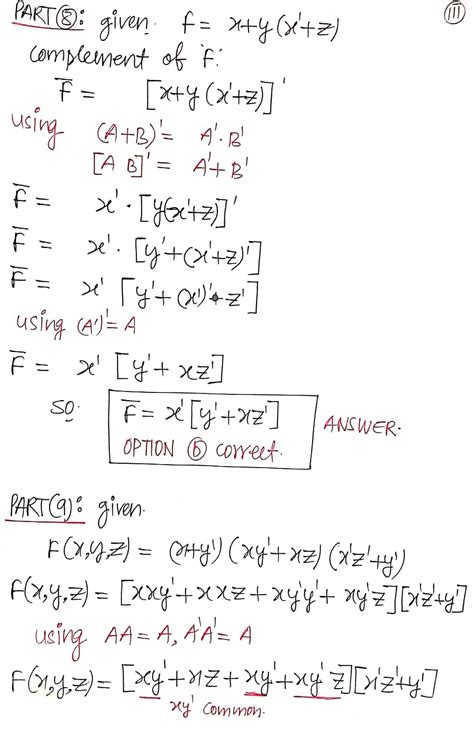 PART⑧: given. f = x+y(x'+z)
(111)
complement of 'f':
F̅ = [x+y(x'+z)]'
using (A+B)' = A'·B'
[A B]' = A'+B'
F̅ = x'·[y(x'+z)]'
F̅ = x'·[y'+(x'+z)']
F̅ = x' [y'+(x')'·z']
using (A')' = A
F̅ = x' [y'+xz']
SO: F̅ = x'[y'+xz']
OPTION ⓑ correct.
ANSWER.
PART(9): given.
F(x,y,z) = (x+y')(xy'+xz)(x'z'+y')
F(x,y,z) = [xxy'+xxz+xy'y'+xy'z][x'z'+y']
using AA=A, A'A'=A
F(x,y,z) = [xy'+xz+xy'+xy'z][x'z'+y']
xy' common.